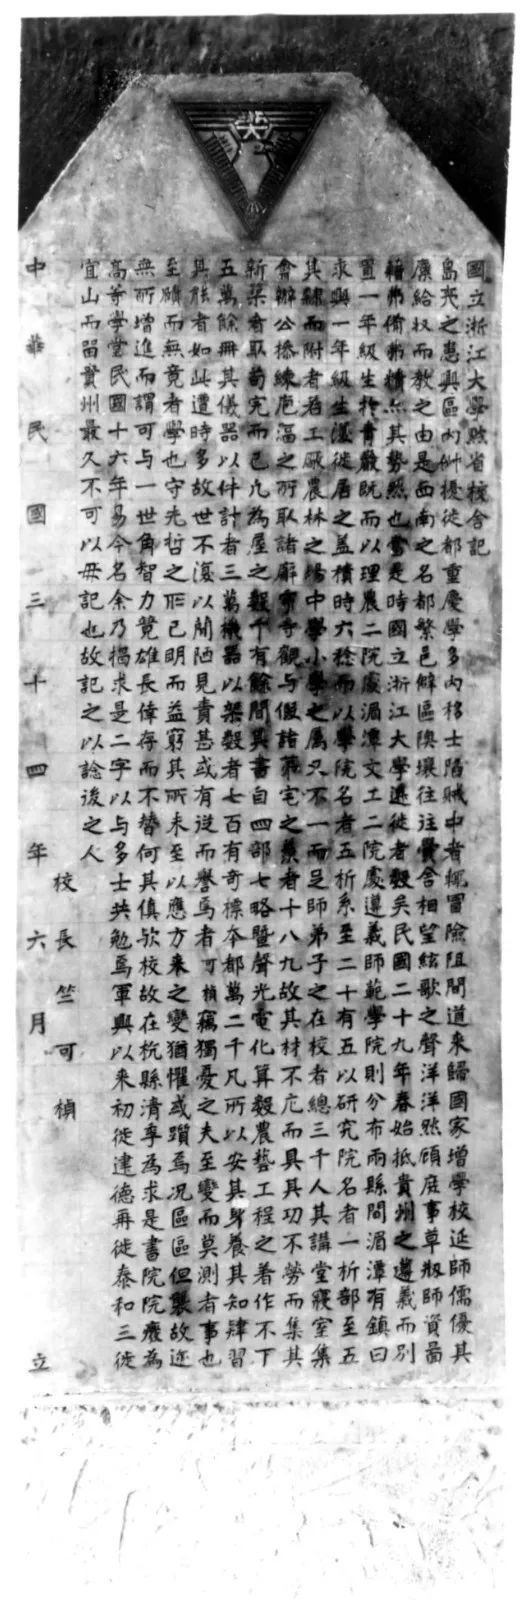 國立浙江大學黔省校舍記
島夷之患興區內俶擾徙都重慶學多內移士陷賊中者輒冒險阻間道來歸國家增學校延師儒優其
廩給收而教之由是西南之名都繁邑僻區隩壤往往黌舍相望絃歌之聲洋洋然顧庭事草剏師資圖
籍弗備弗精亦其勢然也當是時國立浙江大學遷徙者數矣民國二十九年春始抵貴州之遵義而別
置一年級生於青巖既而以理農二院處湄潭文工二院處遵義師範學院則分布兩縣間湄潭有鎮曰
永興一年級生復徙居之蓋積時六稔而以學院名者五析系至二十有五以研究院名者一析部至五
其隸而附者若工廠農林之場中學小學之屬又不一而足師弟子之在校者總三千人其講堂寢室集
會辦公操練庖湢之所取諸廨宇寺觀与假諸第宅之羨者十八九故其材不庀而具其功不勞而集其
新築者取苟完而已凡為屋之數千有餘間其書自四部七略暨聲光電化算數農藝工程之著作不下
五萬餘冊其儀器以件計者三萬機器以架數者七百有奇標本都萬二千凡所以安其身養其知肄習
其能者如此遭時多故世不復以簡陋見責甚或有從而譽焉者可楨竊獨憂之夫至變而莫測者事也
至賾而無竟者學也守先哲之所已明而益窮其所未至以應方來之變猶懼或躓焉況區區但襲故迹
無所增進而謂可与一世角智力競雄長偉存而不替何其傎歟校故在杭縣清季為求是書院院廢為
高等學堂民國十六年易今名余乃揭求是二字以与多士共勉焉軍興以來初徙建德再徙泰和三徙
宜山而留貴州最久不可以毋記也故記之以諗後之人
校長竺可楨
中華民國三十四年六月 立